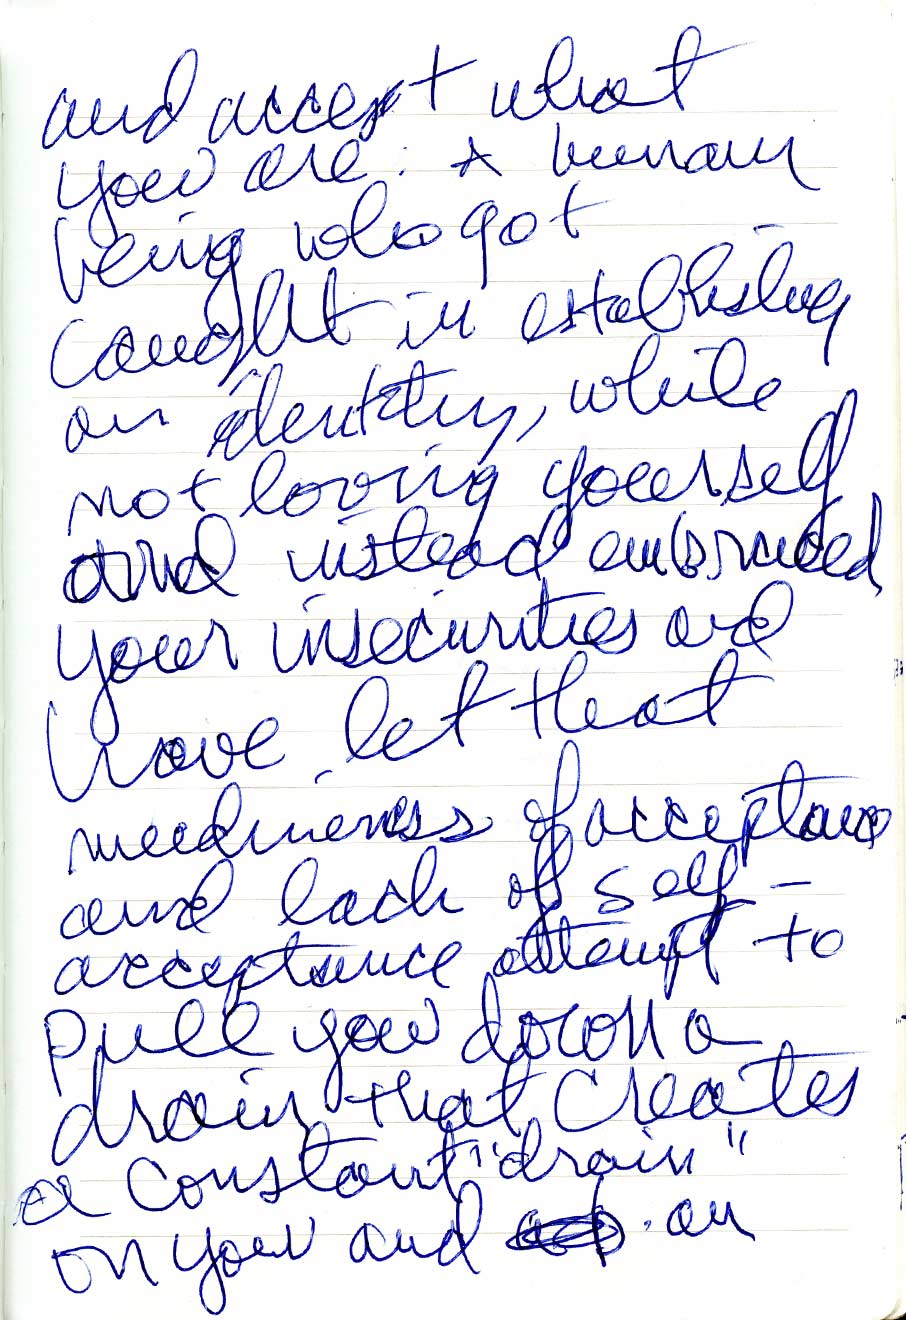 and accept what
you are: A human
being who got
caught in establishing
an identity, while
not loving yourself
and instead embraced
your insecurities and
have let that
neediness of acceptance
and lack of self-
acceptance attempt to
pull you down a
drain that creates
a constant "drain"
on you and an